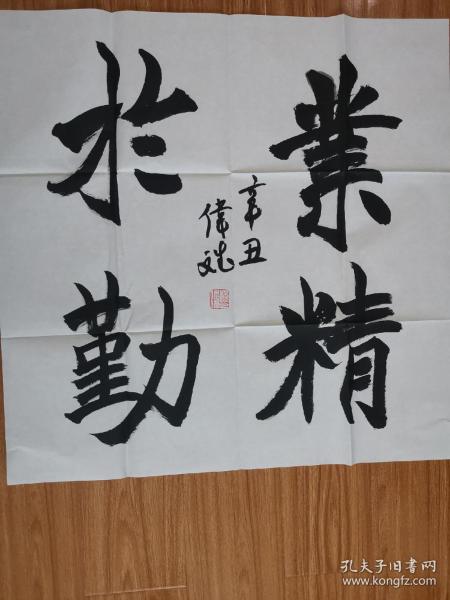 業精
於勤
辛丑
偉斌
孔夫子旧书网
www.kongfz.com